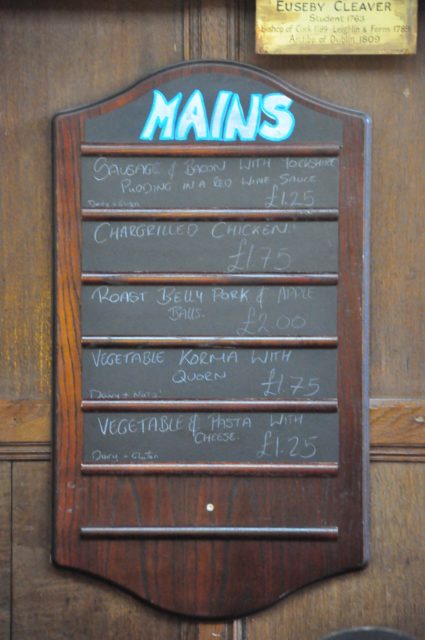 EUSEBY CLEAVER
Student 1763
bishop of Cork 1789 Leighlin & Ferns 1789
Archbp of Dublin 1809
MAINS
SAUSAGE & BACON WITH YORKSHIRE
PUDDING IN A RED WINE SAUCE
£1.25
CHARGRILLED CHICKEN
£1.75
ROAST BELLY PORK & APPLE
BALLS.
£2.00
VEGETABLE KORMA WITH
QUORN
Dairy + Nuts
£1.75
VEGETABLE & PASTA WITH
CHEESE.
Dairy + Gluten
£1.25